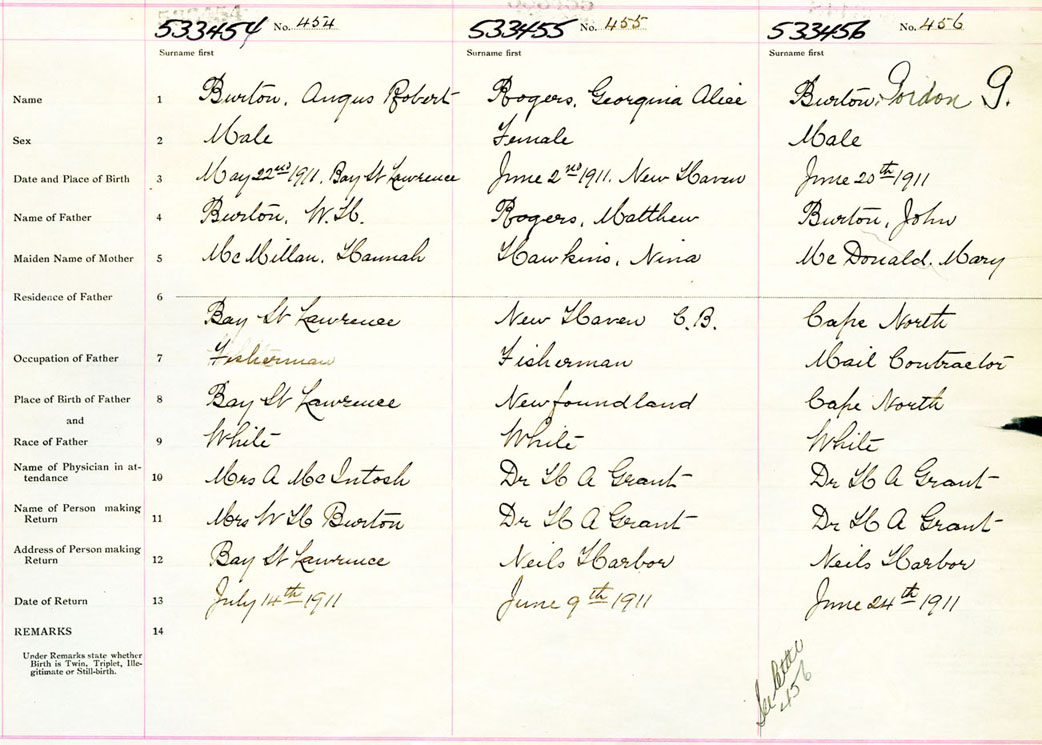 533454 No. 454 533455 No. 455 533456 No. 456
Surname first Surname first Surname first
Name 1 Burton, Angus Robert Rogers, Georgina Alice Burton, Gordon G.
Sex 2 Male Female Male
Date and Place of Birth 3 May 22nd 1911. Bay St Lawrence June 2nd 1911. New Haven June 20th 1911
Name of Father 4 Burton, W. H. Rogers, Matthew Burton, John
Maiden Name of Mother 5 McMillan, Hannah Hawkins, Nina McDonald, Mary
Residence of Father 6
Bay St Lawrence New Haven C.B. Cape North
Occupation of Father 7 Fisherman Fisherman Mail Contractor
Place of Birth of Father 8 Bay St Lawrence Newfoundland Cape North
and
Race of Father 9 White White White
Name of Physician in at-
tendance 10 Mrs A McIntosh Dr H A Grant Dr H A Grant
Name of Person making
Return 11 Mrs W H Burton Dr H A Grant Dr H A Grant
Address of Person making
Return 12 Bay St Lawrence Neils Harbor Neils Harbor
Date of Return 13 July 14th 1911 June 9th 1911 June 24th 1911
REMARKS 14
Under Remarks state whether
Birth is Twin, Triplet, Ille-
gitimate or Still-birth.
See letter
456